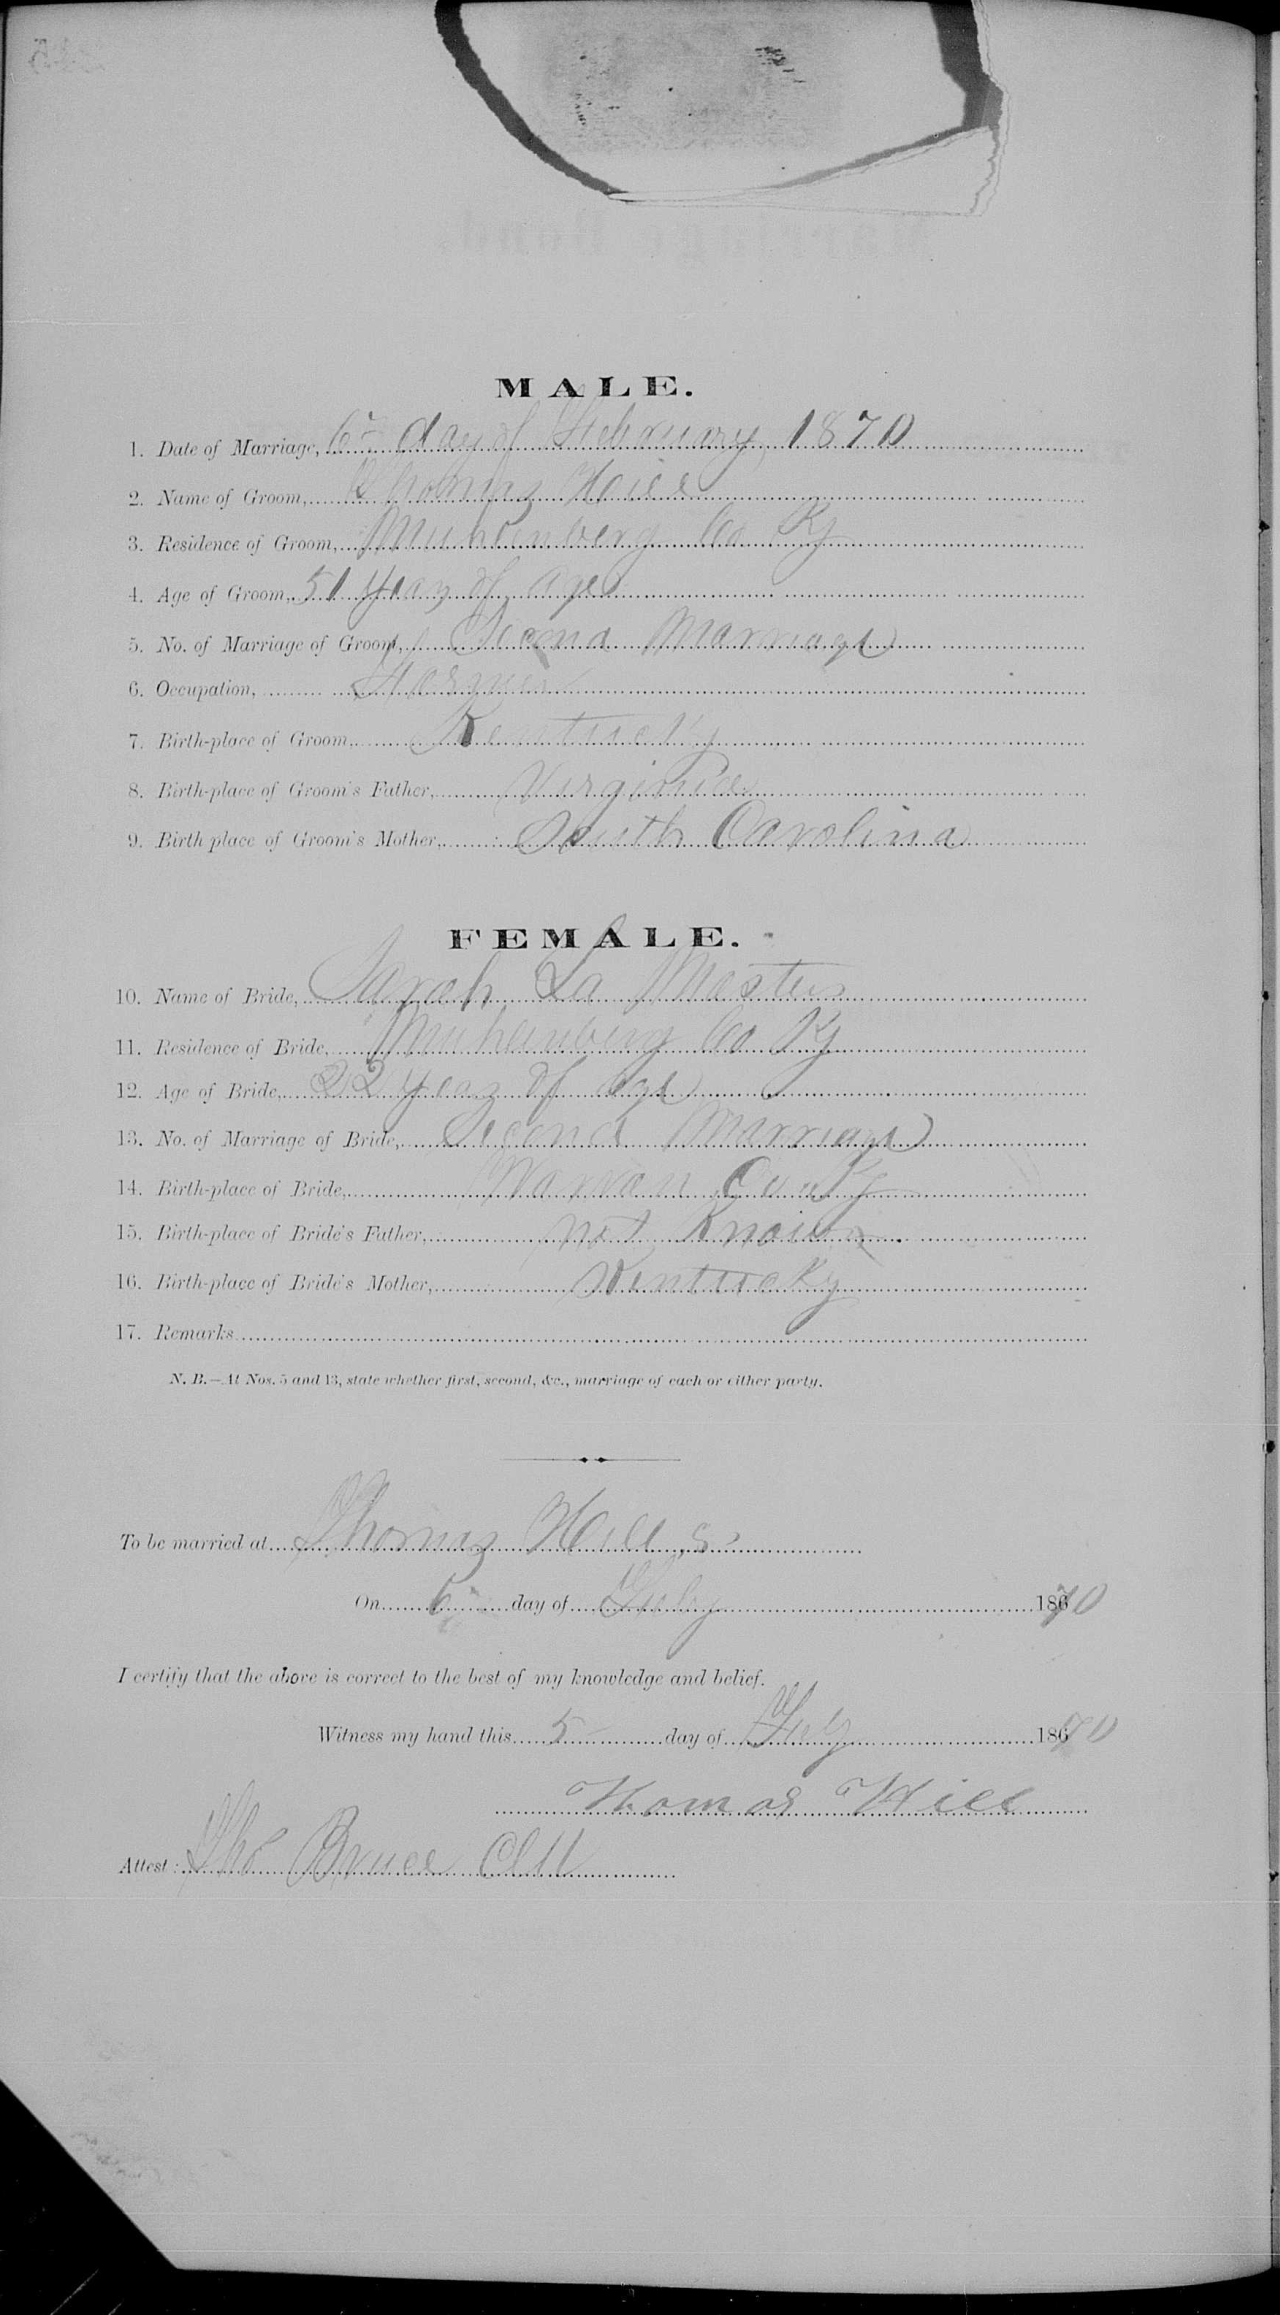 MALE.
1. Date of Marriage, 6 day of February, 1870
2. Name of Groom, Thomas Hill
3. Residence of Groom, Muhlenberg Co Ky
4. Age of Groom, 51 years of age
5. No. of Marriage of Groom, Second Marriage
6. Occupation, Farmer
7. Birth-place of Groom, Kentucky
8. Birth-place of Groom's Father, Virginia
9. Birth place of Groom's Mother, South Carolina
FEMALE.
10. Name of Bride, Sarah La Masters
11. Residence of Bride, Muhlenberg Co Ky
12. Age of Bride, 22 years of age
13. No. of Marriage of Bride, Second Marriage
14. Birth-place of Bride, Warran Co. Ky
15. Birth-place of Bride's Father, not Known.
16. Birth-place of Bride's Mother, Kentucky
17. Remarks
N. B.—At Nos. 5 and 13, state whether first, second, &c., marriage of each or either party.
To be married at Thomas Hill,s
On 6 day of Feby 1870
I certify that the above is correct to the best of my knowledge and belief.
Witness my hand this 5 day of Feby 1870
Thomas Hill
Attest: Tho Bruce Clk